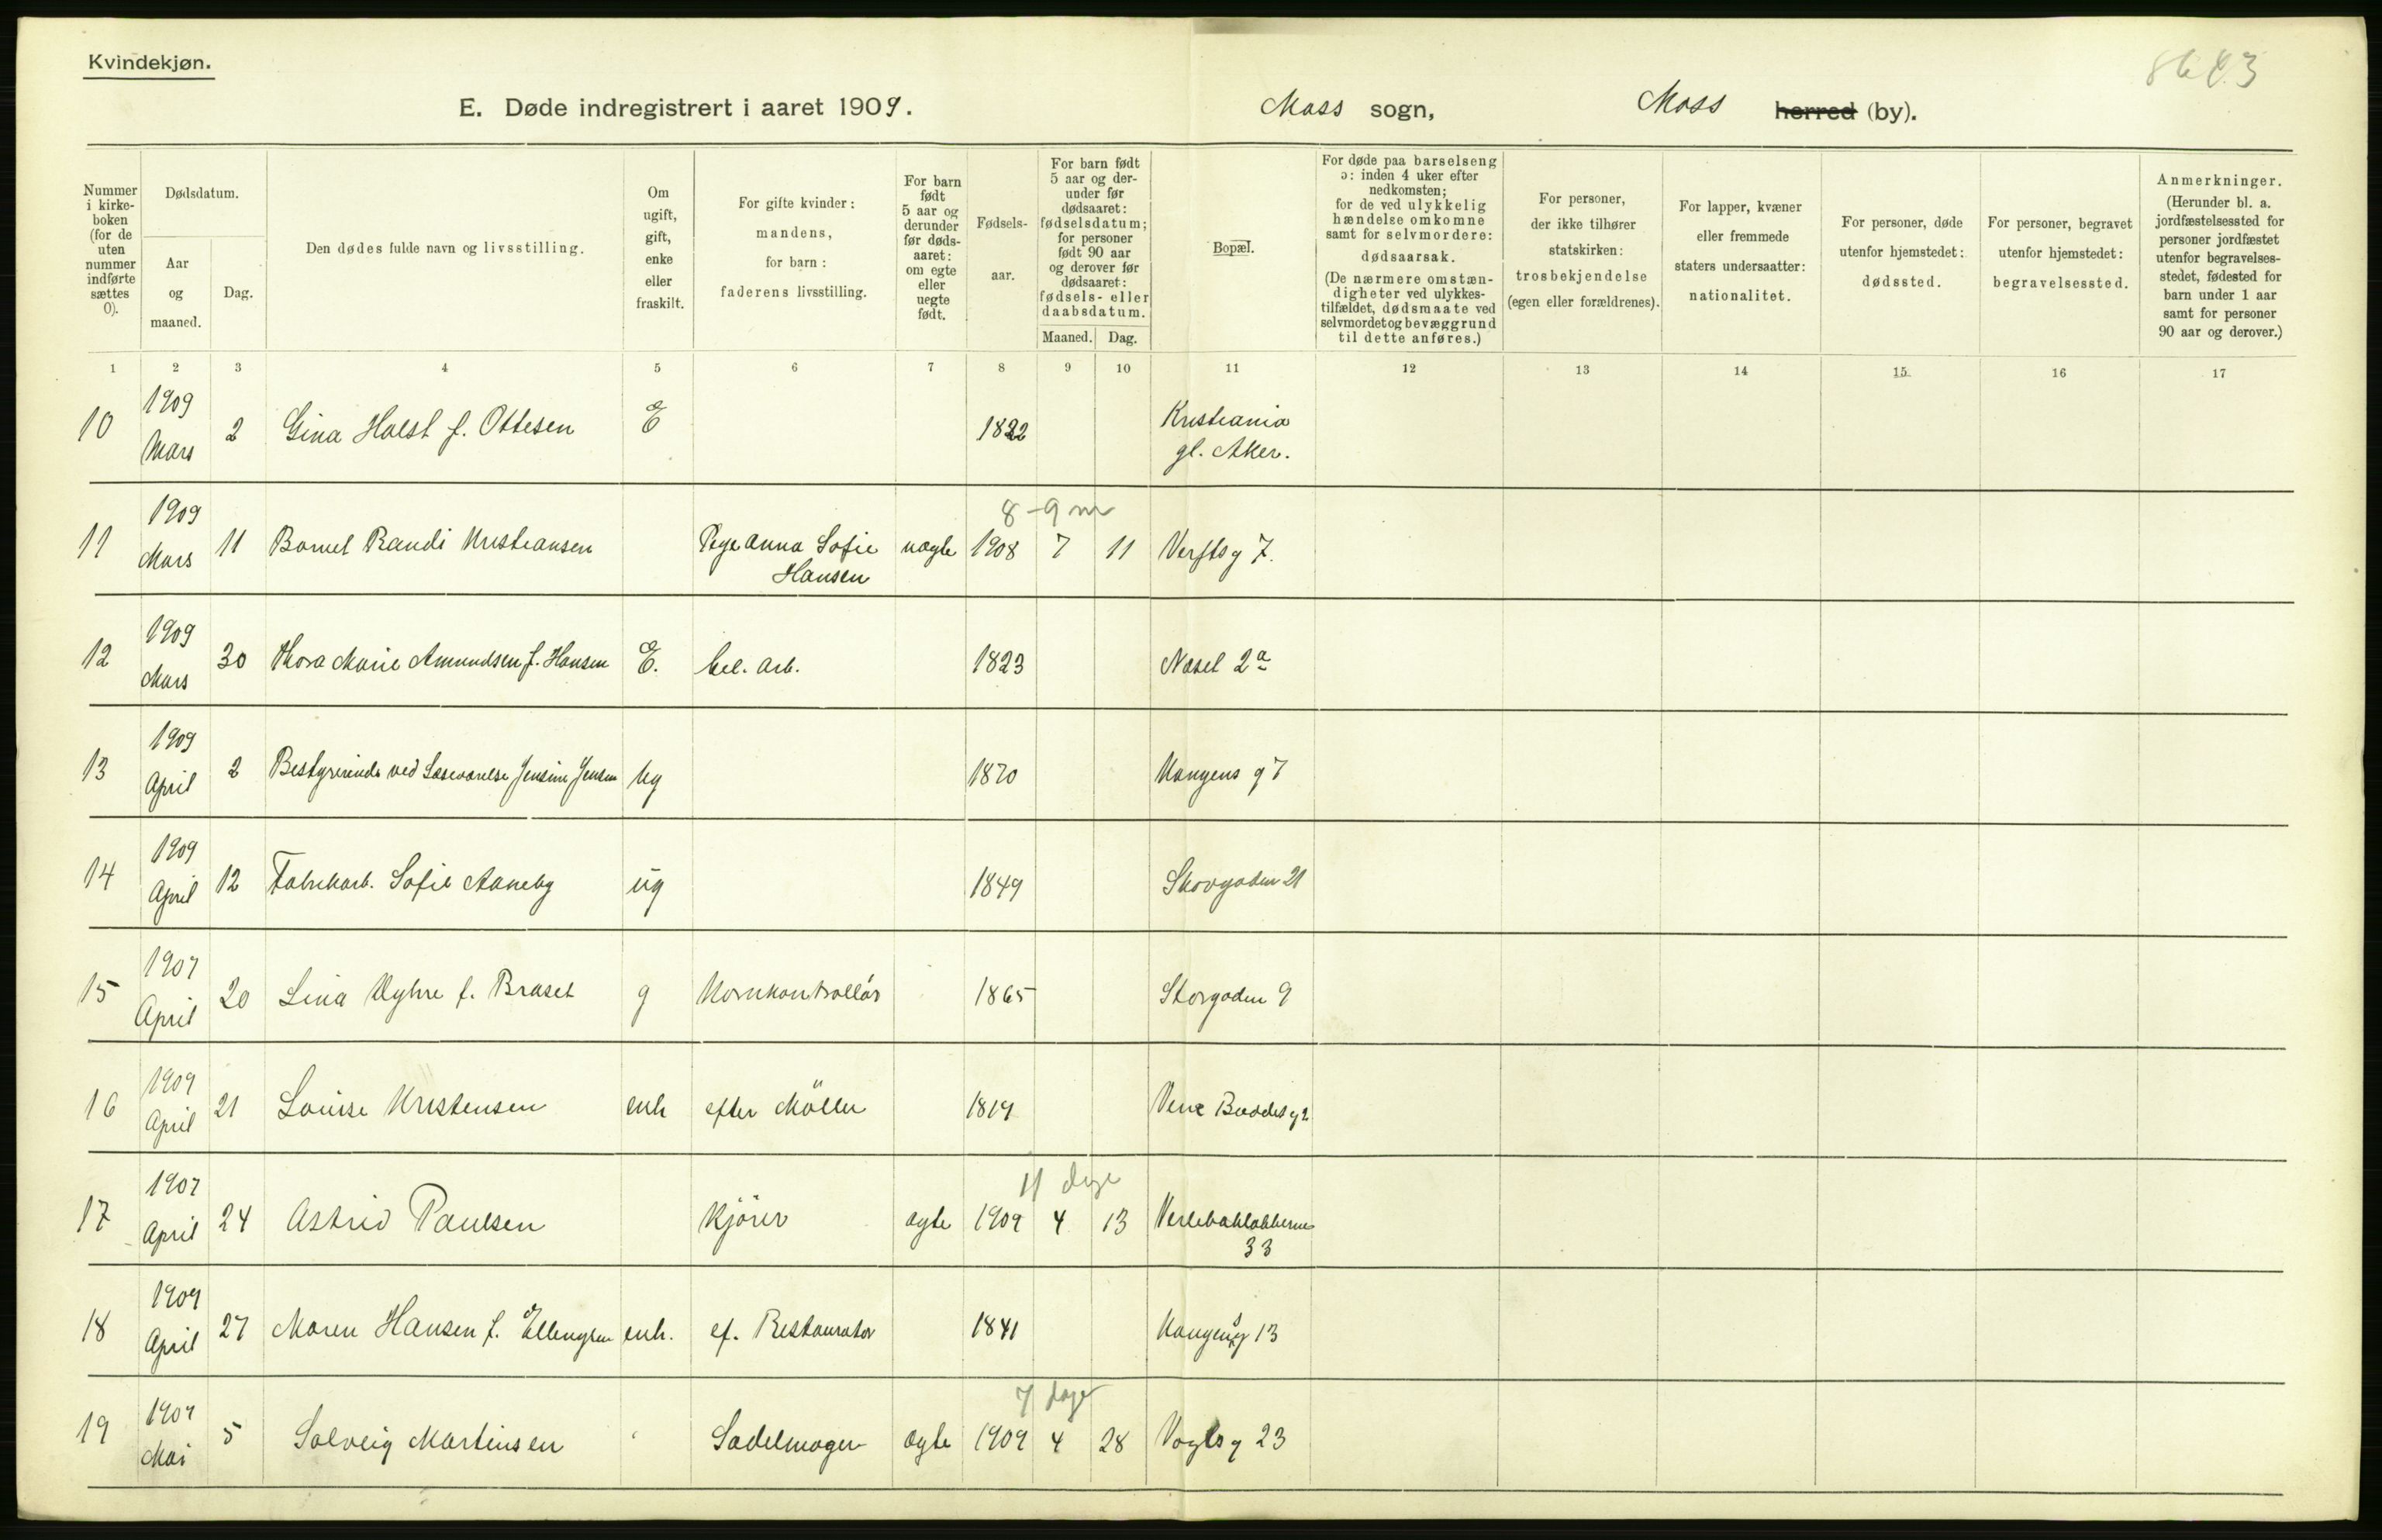 Kvindekjøn.
E. Døde indregistrert i aaret 1909.
Moss sogn,
Moss herred (by).
Nummer i kirke-boken (for de uten nummer indførte sættes 0).
Dødsdatum.
Aar og maaned.
Dag.
Den dødes fulde navn og livsstilling.
Om ugift, gift, enke eller fraskilt.
For gifte kvinder: mandens, for barn: faderens livsstilling.
For barn født 5 aar og derunder før døds-aaret: om egte eller uegte født.
Fødsels-aar.
For barn født 5 aar og der-under før dødsaaret: fødselsdatum; for personer født 90 aar og derover før dødsaaret: fødsels- eller daabsdatum.
Maaned.
Dag.
Bopæl.
For døde paa barselseng ɔ: inden 4 uker efter nedkomsten; for de ved ulykkelig hændelse omkomne samt for selvmordere: dødsaarsak.
(De nærmere omstæn-digheter ved ulykkes-tilfældet, dødsmaate ved selvmordet og bevæggrund til dette anføres.)
For personer, der ikke tilhører statskirken: trosbekjendelse (egen eller forældrenes).
For lapper, kvæner eller fremmede staters undersaatter: nationalitet.
For personer, døde utenfor hjemstedet: dødssted.
For personer, begravet utenfor hjemstedet: begravelsessted.
Anmerkninger.
(Herunder bl. a. jordfæstelsessted for personer jordfæstet utenfor begravelses-stedet, fødested for barn under 1 aar samt for personer 90 aar og derover.)
1 2 3 4 5 6 7 8 9 10 11 12 13 14 15 16 17
10 1909 Mars 2 Gina Holst f. Ottesen E 1822 Kristiania gl. Aker.
8-9 m
11 1909 Mars 11 Barnet Randi Kristiansen Pige Anna Sofie Hansen uægte 1908 7 11 Verftsg 7.
12 1909 Mars 30 Thora Marie Amundsen f. Hansen E. arb. 1823 Næset 2a
13 1909 April 2 Bestyrerinde ved Jensine Jensen ug 1870 Kongens g 7
14 1909 April 12 Fabrikarb. Sofie Aaneby ug 1849 Skovgaden 21
15 1909 April 20 Lina f. Braset g Kornkontrollör 1865 Storgaden 9
16 1909 April 21 Louise Kristensen enk efter Möller 1819 g 2
11 dage
17 1909 April 24 Astrid Paulsen Kjörer ægte 1909 4 13 33
18 1909 April 27 Maren Hansen f. enk. ef. Restauratör 1841 Kongensg 13
7 dage
19 1909 Mai 5 Solveig Martinsen Sadelmager ægte 1909 4 28 Vogtsg 23